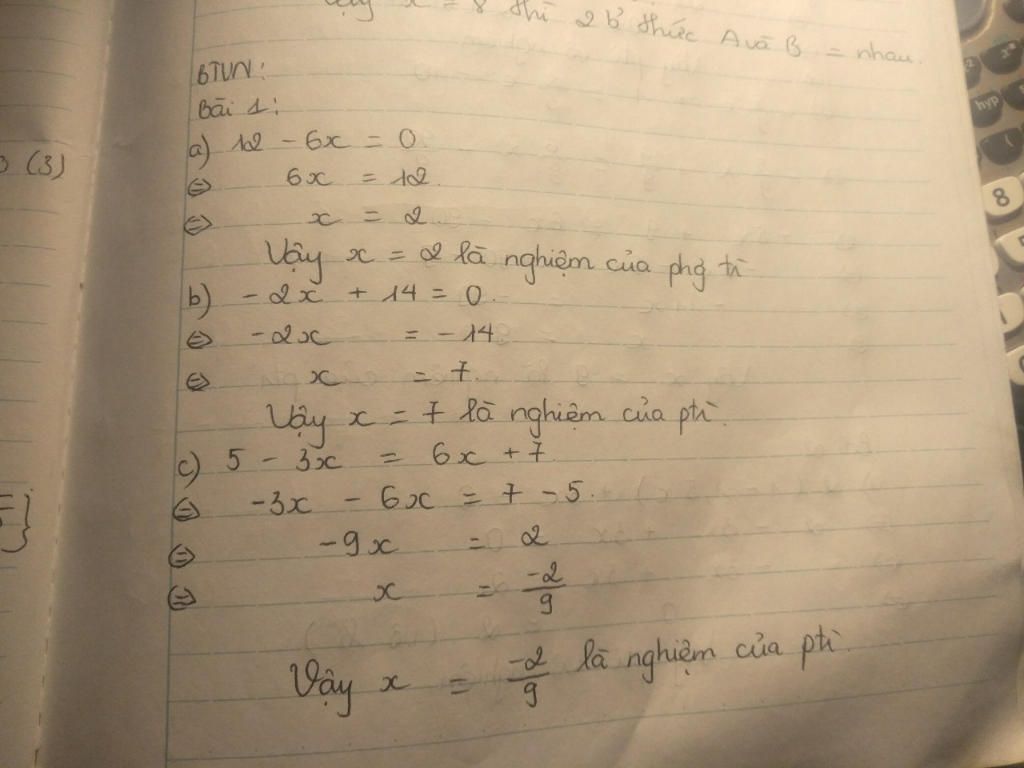 x = 8 thì 2 b' thức A và B = nhau.
BTVN:
Bài 1:
a) 12 - 6x = 0
⇔ 6x = 12.
⇔ x = 2
Vậy x = 2 là nghiệm của phg tì
b) - 2x + 14 = 0.
⇔ -2x = - 14
⇔ x = 7.
Vậy x = 7 là nghiệm của ptì.
c) 5 - 3x = 6x + 7
⇔ -3x - 6x = 7 - 5.
⇔ -9x = 2
⇔ x = -2/9
Vậy x = -2/9 là nghiệm của ptì.
(3)
hyp
8